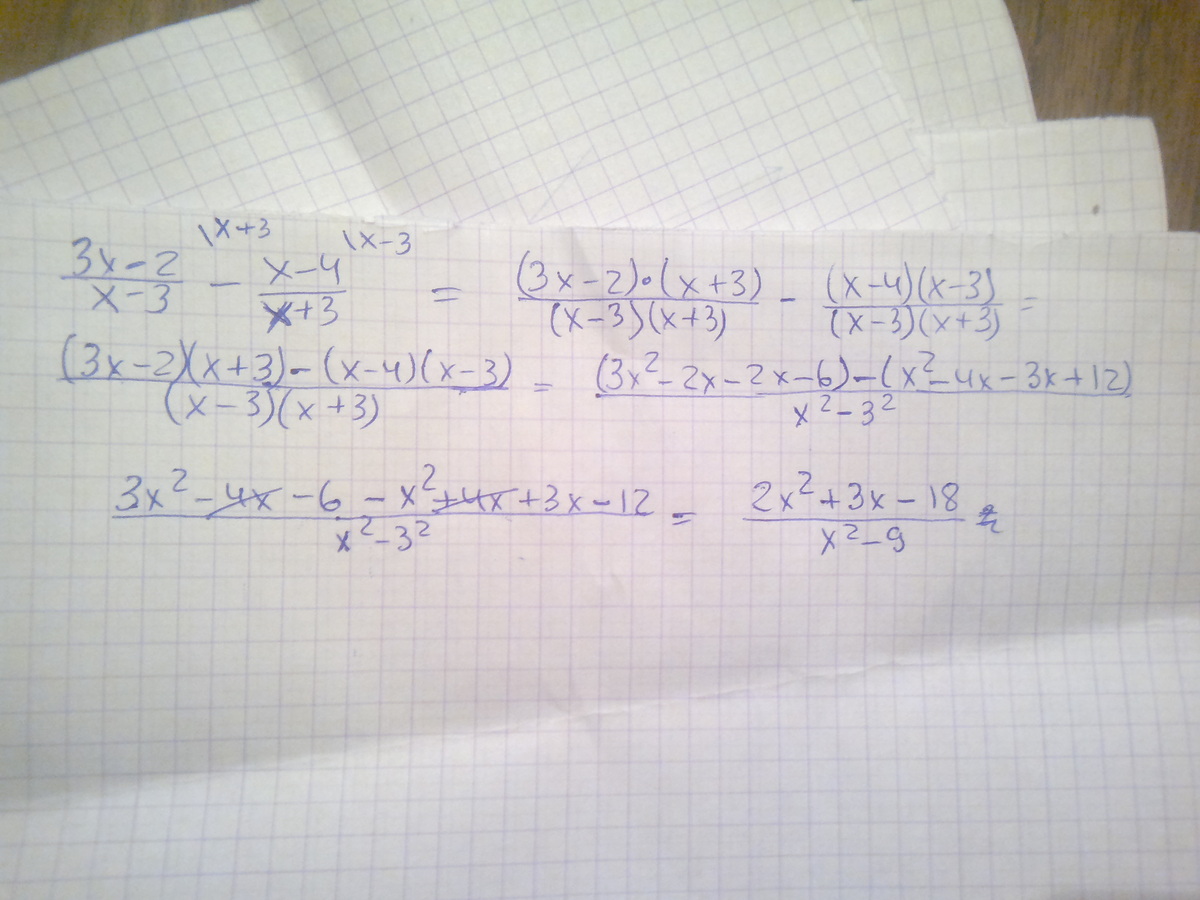 \frac{3x-2}{x-3}^{\backslash x+3} - \frac{x-4}{x+3}^{\backslash x-3} = \frac{(3x-2)\cdot(x+3)}{(x-3)(x+3)} - \frac{(x-4)(x-3)}{(x-3)(x+3)} =
\frac{(3x-2)(x+3)-(x-4)(x-3)}{(x-3)(x+3)} = \frac{(3x^2-2x-2x-6)-(x^2-4x-3x+12)}{x^2-3^2}
\frac{3x^2-4x-6-x^2+4x+3x-12}{x^2-3^2} = \frac{2x^2+3x-18}{x^2-9}